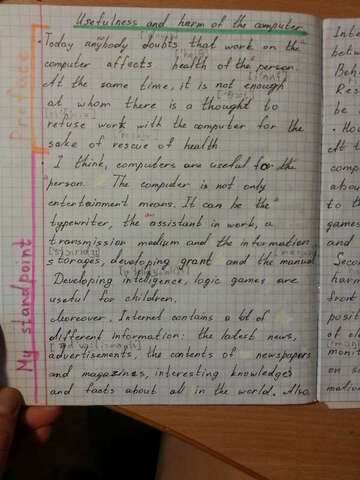 Usefulness and harm of the computer.
Preface
• Today anybody doubts, that work on the
computer affects health of the person.
At the same time, it is not enough
at whom there is a thought to
refuse work with the computer for the
sake of rescue of health
My standpoint
• I think, computers are useful for the
person. The computer is not only
entertainment means. It can be the
typewriter, the assistant in work, a
transmission medium and the information
storages, developing grant and the manual.
Developing intelligence, logic games are
useful for children.
Moreover. Internet contains a lot of
different information: the latest news,
advertisements, the contents of newspapers
and magazines, interesting knowledges
and facts about all in the world. Also
Inte
betw
Beh
Res
be
• Ho
At t
comp
abou
to th
games
and
Secon
harm
front
posit
of s
monit
on s
mation